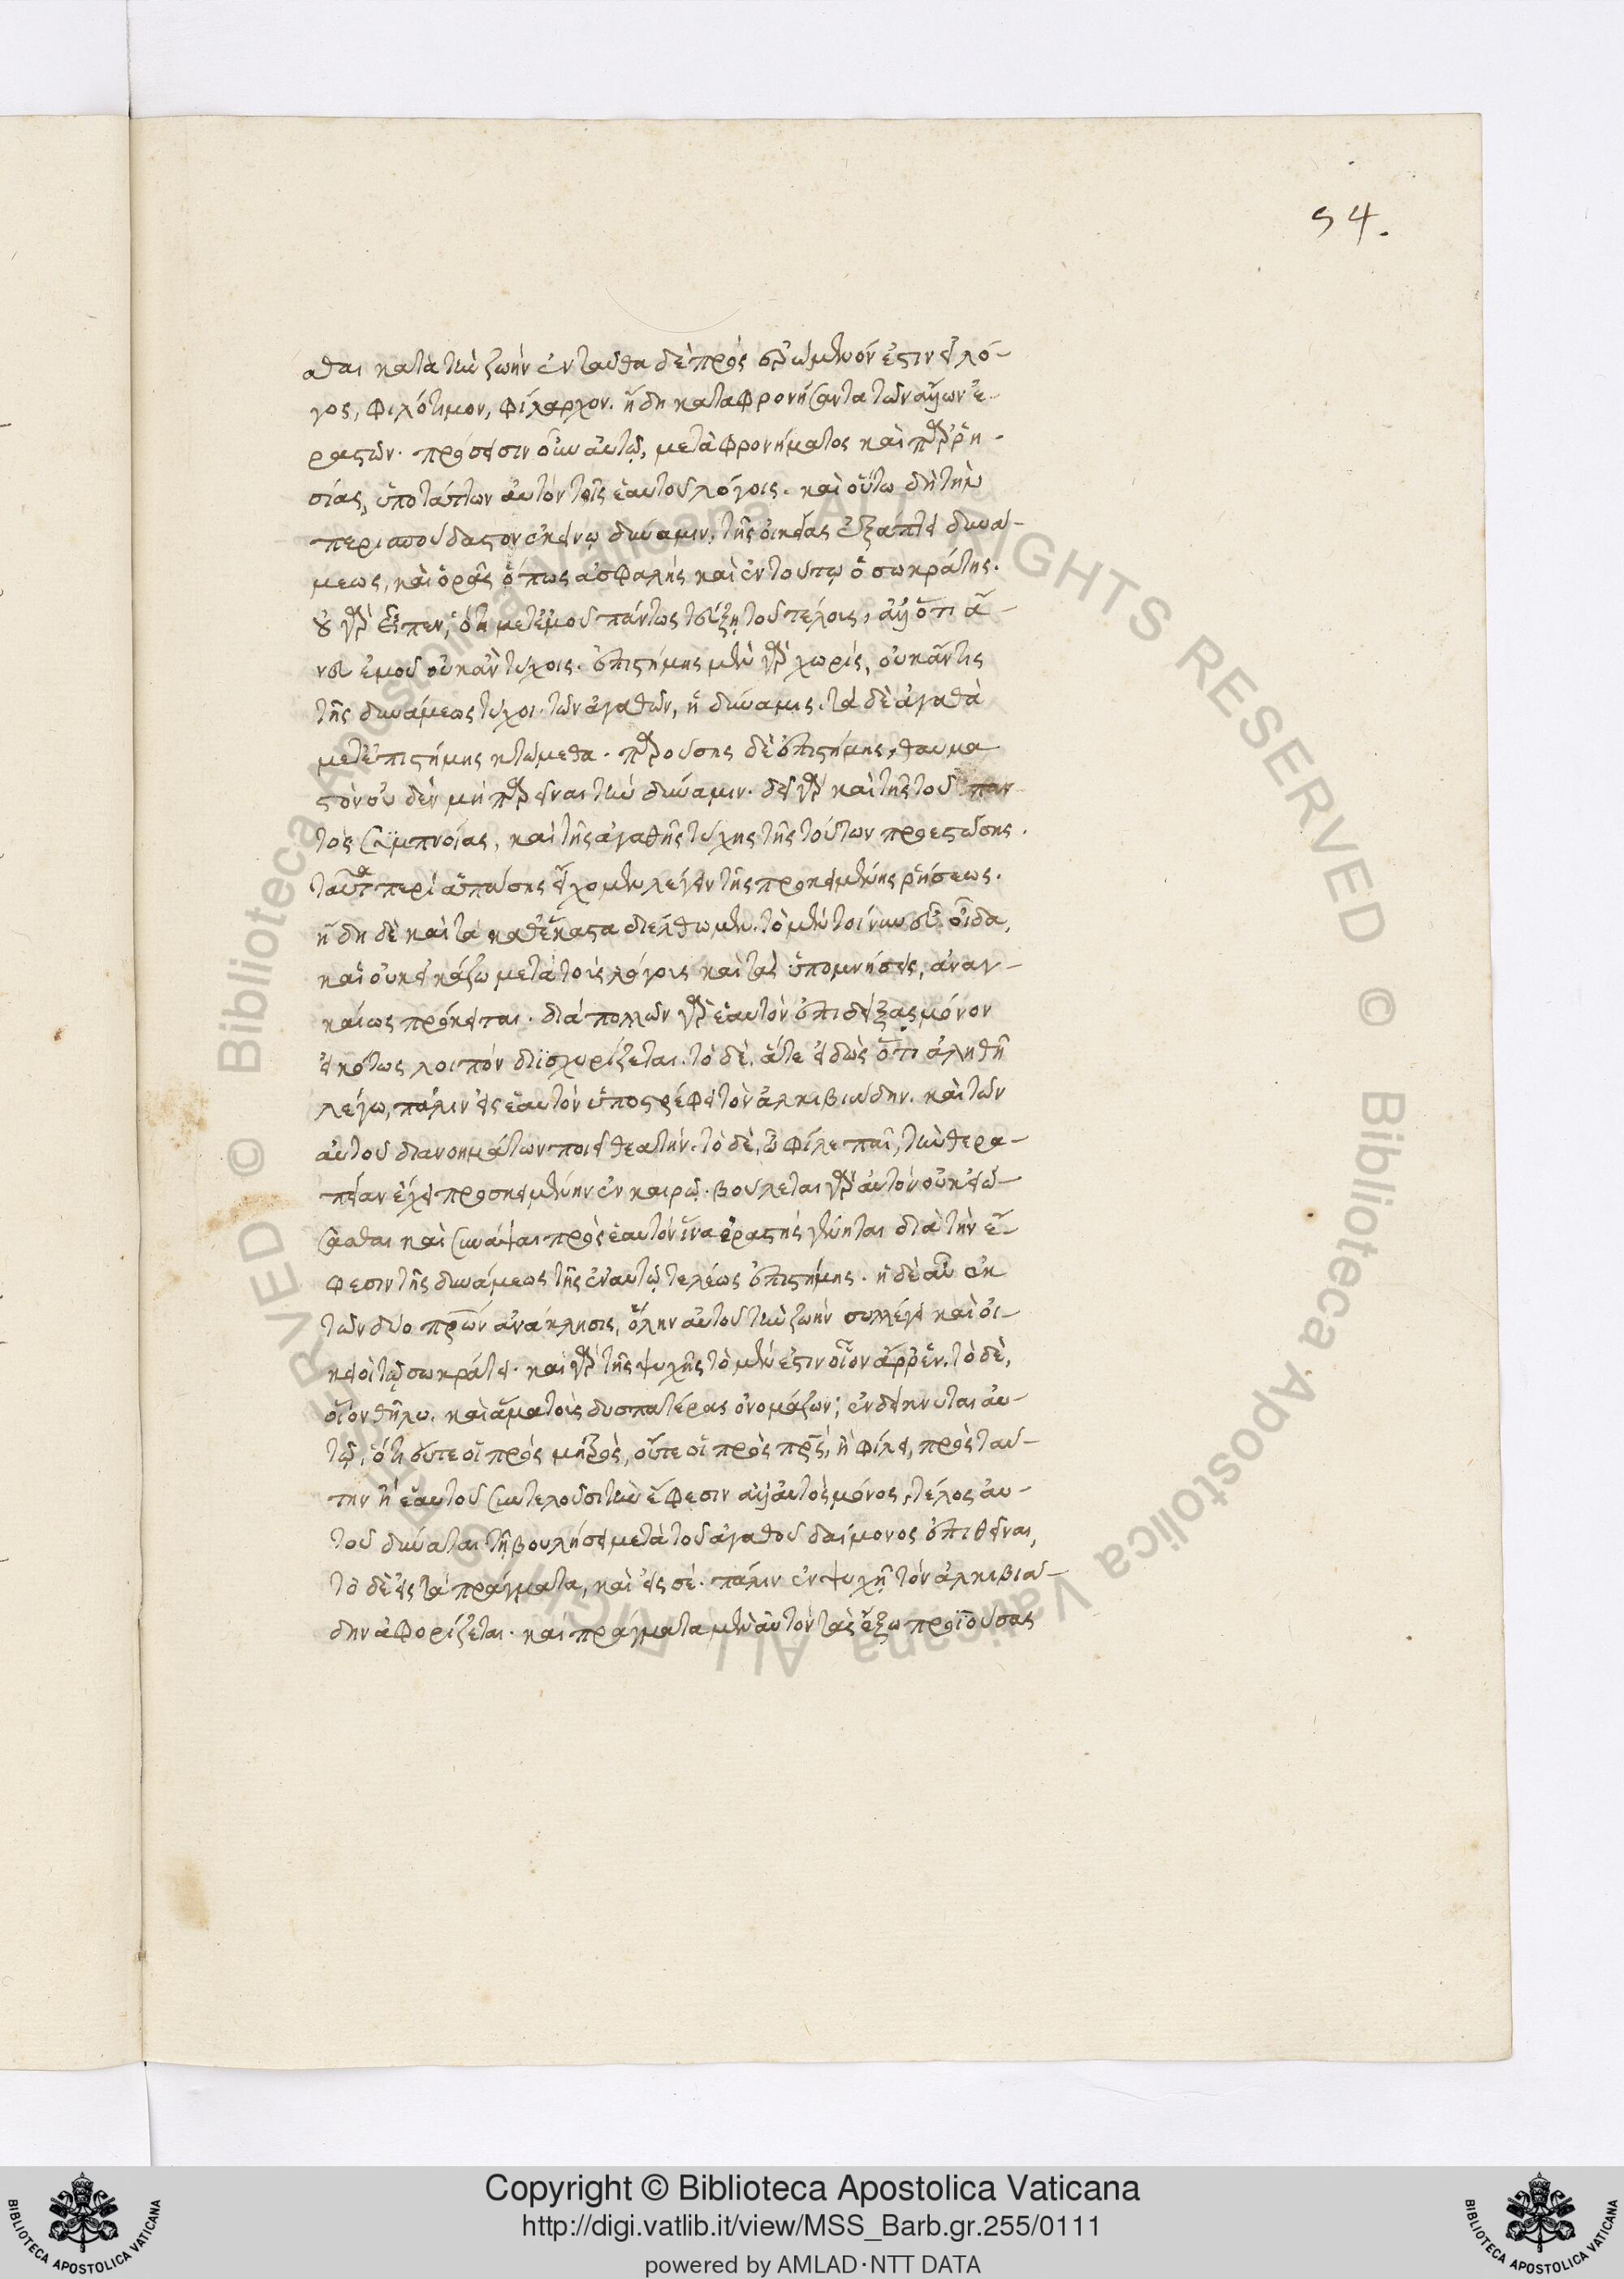 54.
σθαι κατὰ τὴν ζωὴν ἐνταῦθα δὲ πρὸς ἐρώμενόν ἐστιν ὁ λό-
γος, φιλότιμον, φίλαρχον. ἤδη καταφρονήσαντα τῶν ἄλλων ἐ-
ραστῶν. πρόσεισιν οὖν αὐτῷ, μετὰ φρονήματος καὶ παρρη-
σίας, ὑποτάττων αὐτὸν τοῖς ἑαυτοῦ λόγοις. καὶ οὕτω δὴ τὴν
περισπούδαστον ἐκείνῳ δύναμιν, τῆς οἰκείας ἐξάπτει δυνά-
μεως, καὶ ὁρᾷς ὅπως ἀσφαλὴς καὶ ἐν τούτῳ ὁ σωκράτης.
οὐ γὰρ εἶπεν, ὅτι μετ' ἐμοῦ πάντως τεύξῃ τοῦ τέλους, ἀλλ' ὅτι ἄ-
νευ ἐμοῦ οὐκ ἂν τύχοις. ἐπιστήμης μὲν γὰρ χωρίς, οὐκ ἄν τις
τῆς δυνάμεως τύχοι. τῶν ἀγαθῶν, ἡ δύναμις. τὰ δὲ ἀγαθὰ
μετ' ἐπιστήμης κτώμεθα. παρούσης δὲ ἐπιστήμης, θαυμα
στὸν οὐδὲν μὴ παρεῖναι τὴν δύναμιν. δεῖ γὰρ καὶ τῆς τοῦ παν
τὸς συμπνοίας, καὶ τῆς ἀγαθῆς τύχης τῆς τούτων προεστώσης.
ταῦτα περὶ ἁπάσης εἴχομεν λέγειν τῆς προκειμένης ῥήσεως.
ἤδη δὲ καὶ τὰ καθ' ἕκαστα διέλθωμεν. τὸ μὲν τοίνυν εὖ οἶδα,
καὶ οὐκ εἰκάζω μετὰ τοὺς λόγους καὶ τὰς ὑπομνήσεις, ἀναγ-
καίως πρόκειται. διὰ πολλῶν γὰρ ἑαυτὸν ἐπιδείξας μόνον
εἰκότως λοιπὸν διϊσχυρίζεται. τὸ δέ, ἅτε εἰδὼς ὅτι ἀληθῆ
λέγω, πάλιν εἰς ἑαυτὸν ὑποστρέφει τὸν ἀλκιβιάδην. καὶ τῶν
αὑτοῦ διανοημάτων ποιεῖ θεατήν. τὸ δέ, ὦ φίλε παῖ, τὴν θερα-
πείαν ἔχει προσκειμένην ἐν καιρῷ. βούλεται γὰρ αὐτὸν οἰκειώ-
σασθαι καὶ συνάψαι πρὸς ἑαυτὸν ἵνα ἐραστὴς γένηται διὰ τὴν ἔ-
φεσιν τῆς δυνάμεως τῆς ἐν αὐτῷ τελέως ἐπιστήμης. ἡ δὲ αὖ ἐκ
τῶν δύο πρῶν ἀνάκλησις, ὅλην αὐτοῦ τὴν ζωὴν συλλέγει καὶ οἰ-
κειοῖ τῷ σωκράτει. καὶ γὰρ τῆς ψυχῆς τὸ μέν ἐστιν οἷον ἄρρεν. τὸ δὲ,
οἷον θῆλυ. καὶ ἅμα τοὺς δύο πατέρας ὀνομάζων, ἐνδείκνυται αὐ-
τῷ, ὅτι οὔτε οἱ πρὸς μητρὸς, οὔτε οἱ πρὸς πρς, ἢ φίλοι, πρὸς ταύ-
την ἢ ἑαυτοῦ συντελοῦσι τὴν ἔφεσιν ἀλλ' αὐτὸς μόνος, τέλος αὐ-
τοῦ δύναται τῇ βουλήσει μετὰ τοῦ ἀγαθοῦ δαίμονος ἐπιθεῖναι,
τὸ δὲ εἰς τὰ πράγματα, καὶ εἰς σέ. πάλιν ἐν ψυχῇ τὸν ἀλκιβιά-
δην ἀφορίζεται. καὶ πράγματα μὲν αὐτὸν τὰς ἔξω προϊούσας
Copyright © Biblioteca Apostolica Vaticana
http://digi.vatlib.it/view/MSS_Barb.gr.255/0111
powered by AMLAD·NTT DATA
BIBLIOTECA APOSTOLICA VATICANA
BIBLIOTECA APOSTOLICA VATICANA